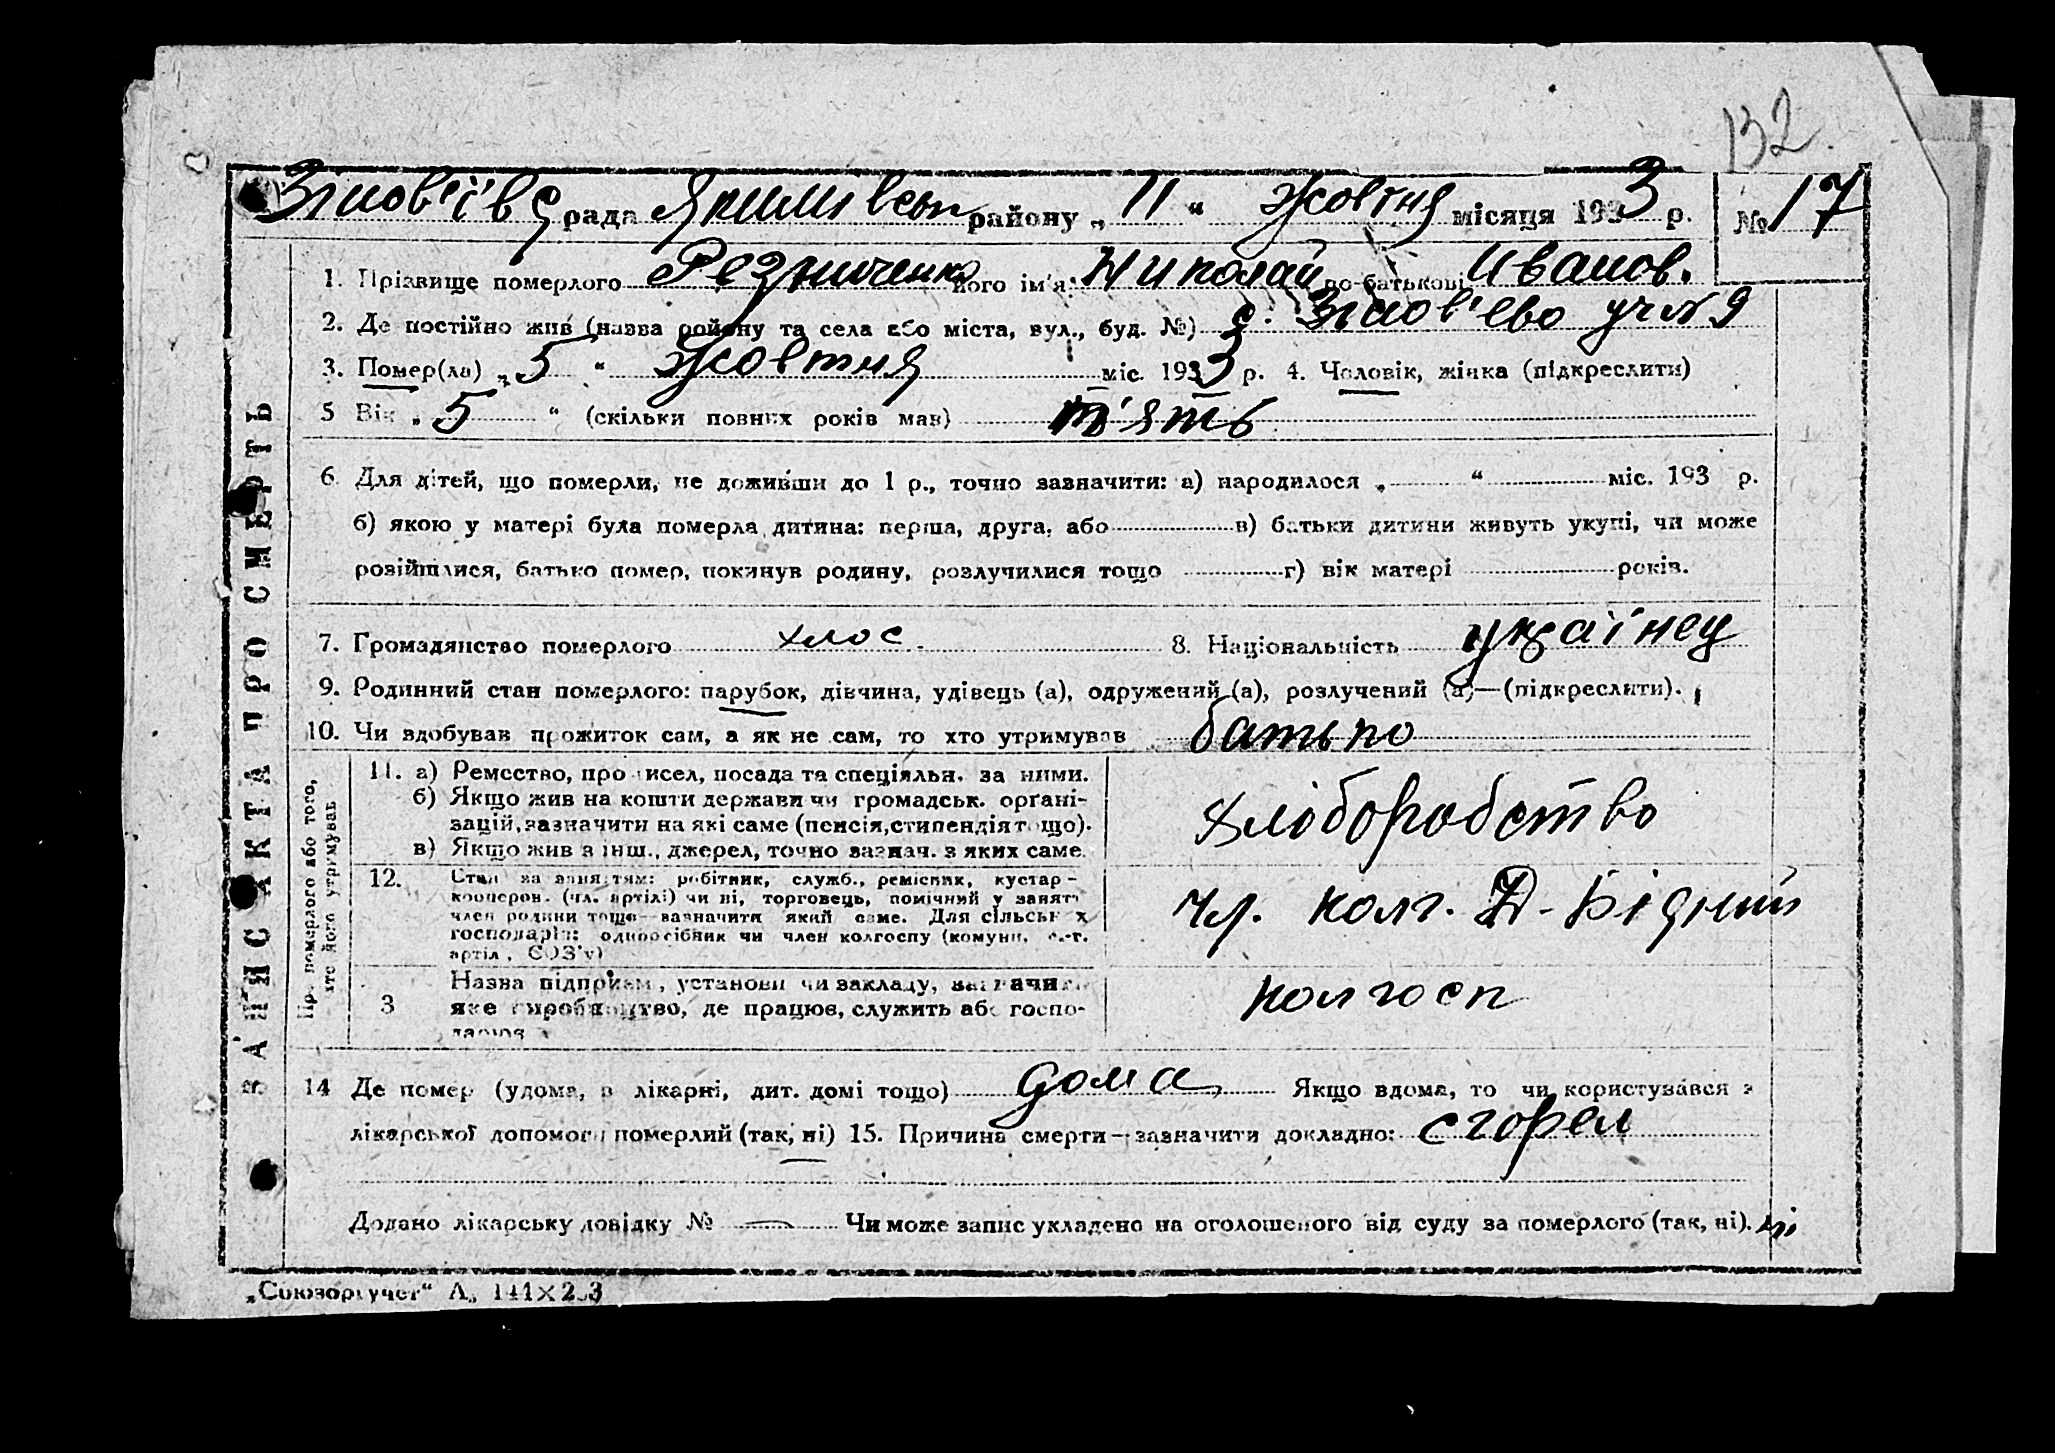 132.
Зінов'ївс рада Якимівськ району „ 11 “ Жовтня місяця 1933 р. № 17
1. Прізвище померлого Резниченко його ім'я Николай по-батькові Иванов.
2. Де постійно жив (назва району та села або міста, вул., буд. №) с. Зінов'ево уч. № 9
3. Помер(ла) „ 5 “ Жовтня міс. 1933 р. 4. Чоловік, жінка (підкреслити)
5 Вік „ 5 “ (скільки повних років мав) п'ять
6. Для дітей, що померли, не доживши до 1 р., точно зазначити: а) народилося „ “ міс. 193 р.
б) якою у матері була померла дитина: перша, друга, або в) батьки дитини живуть укупі, чи може
розійшлися, батько помер, покинув родину, розлучилися тощо г) вік матері років.
7. Громадянство померлого 8. Національність українец
9. Родинний стан померлого: парубок, дівчина, удівець (а), одружений (а), розлучений (а)—(підкреслити).
10. Чи здобував прожиток сам, а як не сам, то хто утримував батько
ЗАПИС АКТА ПРО СМЕРТЬ
Про померлого або того,
хто його утримував
11. а) Ремество, промисел, посада та спеціяльн. за ними.
б) Якщо жив на кошти держави чи громадськ. органі-
зацій, зазначити на які саме (пенсія, стипендія тощо).
в) Якщо жив з інш., джерел, точно зазнач. з яких саме.
хліборобство
12. Стан за заняттям: робітник, служб., ремісник, кустар-
кооперов. (чл. артілі) чи ні, торговець, помічний у занятті
член родини тощо—зазначити який саме. Для сільських
господарів: одноосібник чи член колгоспу (комуни, с.-г.
артіл., СОЗ'у)
чл. колг. Д-Бідний
3 Назва підприєм., установи чи закладу, зазначити
яке виробництво, де працює, служить або госпо-
дарює
колгосп
14 Де помер (удома, в лікарні, дит. домі тощо) дома Якщо вдома, то чи користувався з
лікарської допомоги померлий (так, ні) 15. Причина смерти—зазначити докладно: сгорел
Додано лікарську довідку № — Чи може запис укладено на оголошеного від суду за померлого (так, ні). ні
„Союзоргучет“ А,